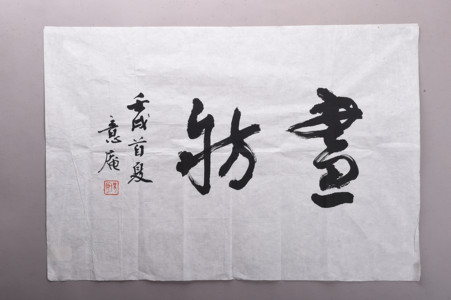 畫舫
壬戌首夏
意庵